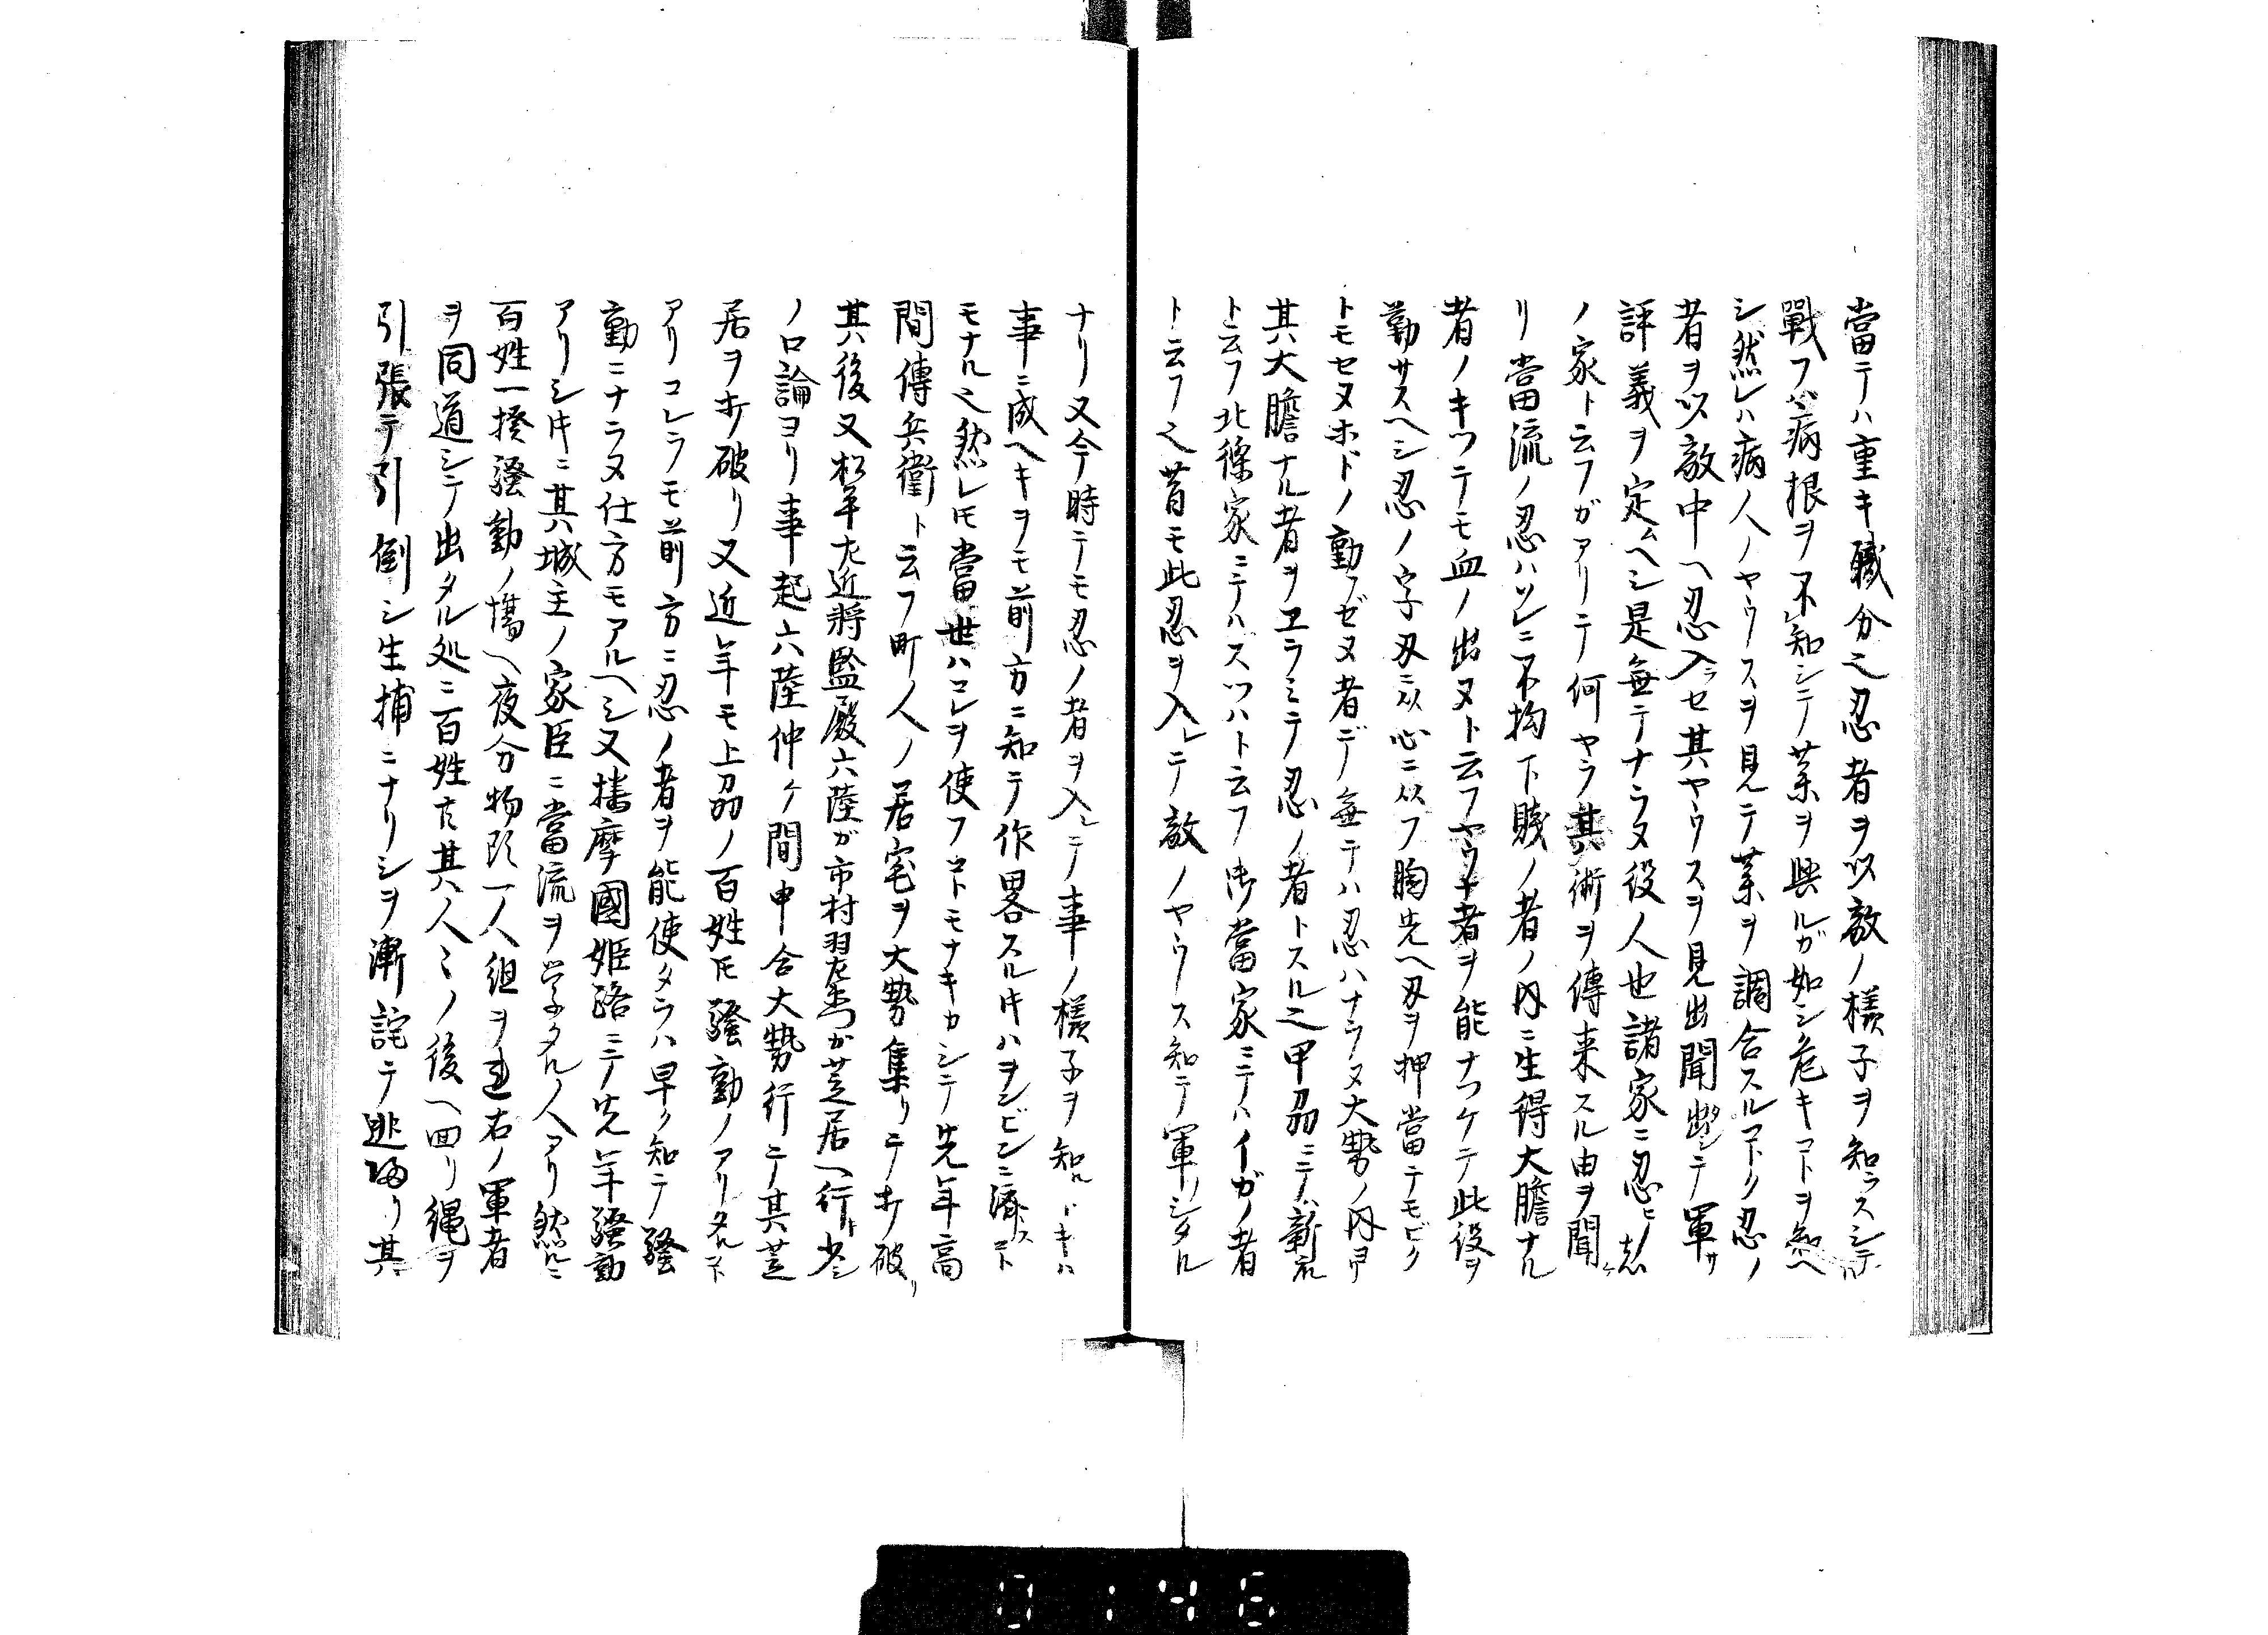 當テハ重キ職分之忍者ヲ以敵ノ樣子ヲ知ラスシテ
戰フハ病根ヲ不知シテ薬ヲ與ルガ如シ危キコトヲ知ヘ
シ然レハ病人ノヤウスヲ見テ薬ヲ調合スルコトク忍ノ
者ヲ以敵中ヘ忍入ラセ其ヤウスヲ見出聞出シテ軍サ
評義ヲ定ムヘシ是無テナラヌ役人也諸家ニ忍ヒノ
ノ家ト云フガアリテ何ヤラ其術ヲ傳来スル由ヲ聞ケ
リ當流ノ忍ハソレニ不拘下賤ノ者ノ内ニ生得大膽ナル
者ノキツテモ血ノ出ヌト云フヤウナ者ヲ能ナツケテ此役ヲ
勤サスヘシ忍ノ字刄ニ从心ニ从フ胸先ヘ刄ヲ押當テモビク
トモセヌホドノ動ゼヌ者デ無テハ忍ハナラヌ大勢ノ内ヨリ
其大膽ナル者ヲヱラミテ忍ノ者トスル之甲刕ニテハ
ト云フ北條家ニテハスツハト云フ御當家ニテハイガノ者
ト云フ之昔モ此忍ヲ入レテ敵ノヤウス知テ軍ヲシタル
ナリ又今時テモ忍ノ者ヲ入レテ事ノ樣子ヲ知ルトキハ
事ニ成ヘキヲモ前方ニ知テ作畧スル片ハヲンビンニ済スコト
モナル之然レ𪜈當世ハコレヲ使フコトモナキカシテ先年高
間傳兵衞ト云フ町人ノ居宅ヲ大勢集リテ打破リ
其後又松平左近將監殿六陸ガ市村羽左衛門が芝居ヘ行キ少シ
ノ口論ヨリ事起六陸仲ヶ間申合大勢行テ其芝
居ヲ打破リ又近年モ上刕ノ百姓𪜈騷動ノアリタルコト
アリコレラモ前方ニ忍ノ者ヲ能使タラハ早ク知テ騷
動ニナラヌ仕方モアルヘシ又播摩國姫路ニテ先年騷動
アリシ片ニ其城主ノ家臣ニ當流ヲ学タルノ人アリ然ルニ
百姓一揆騷動ノ場ヘ夜分物頭一人組ヲ連右ノ軍者
ヲ同道シテ出タル処ニ百姓共其人々ノ後ヘ回リ縄ヲ
引張テ引倒シ生捕ニナリシヲ漸詫テ逃歸リ其